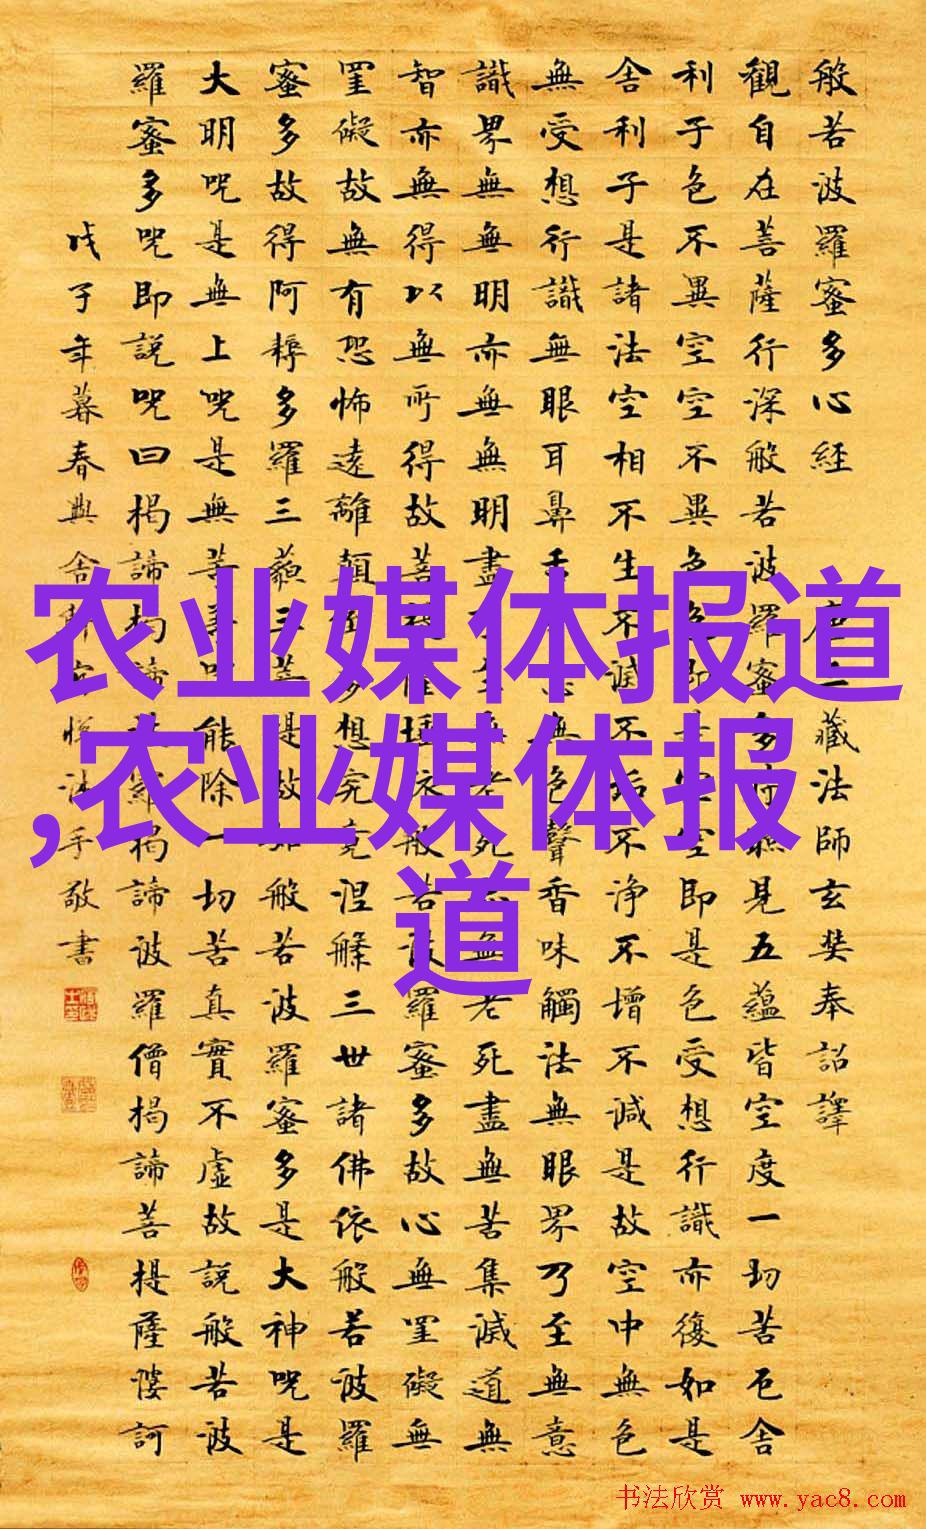 般若波羅蜜多心經 唐三藏法師玄奘奉詔譯
觀自在菩薩行深般若波羅蜜多時照見五蘊皆空度一切苦厄舍
利子色不異空空不異色色即是空空即是色受想行識亦復如是
舍利子是諸法空相不生不滅不垢不淨不增不減是故空中無色
無受想行識無眼耳鼻舌身意無色聲香味觸法無眼界乃至無意
識界無無明亦無無明盡乃至無老死亦無老死盡無苦集滅道無
智亦無得以無所得故菩提薩埵依般若波羅蜜多故心無罣礙無
罣礙故無有恐怖遠離顛倒夢想究竟涅槃三世諸佛依般若波羅
蜜多故得阿耨多羅三藐三菩提故知般若波羅蜜多是大神咒是
大明咒是無上咒是無等等咒能除一切苦真實不虛故說般若波
羅蜜多咒即說咒曰揭諦揭諦波羅揭諦波羅僧揭諦菩提薩婆訶
戊子年暮春 法手敬書
农业媒体报道
,农业媒体报
道
书法欣赏 www.yac8.com